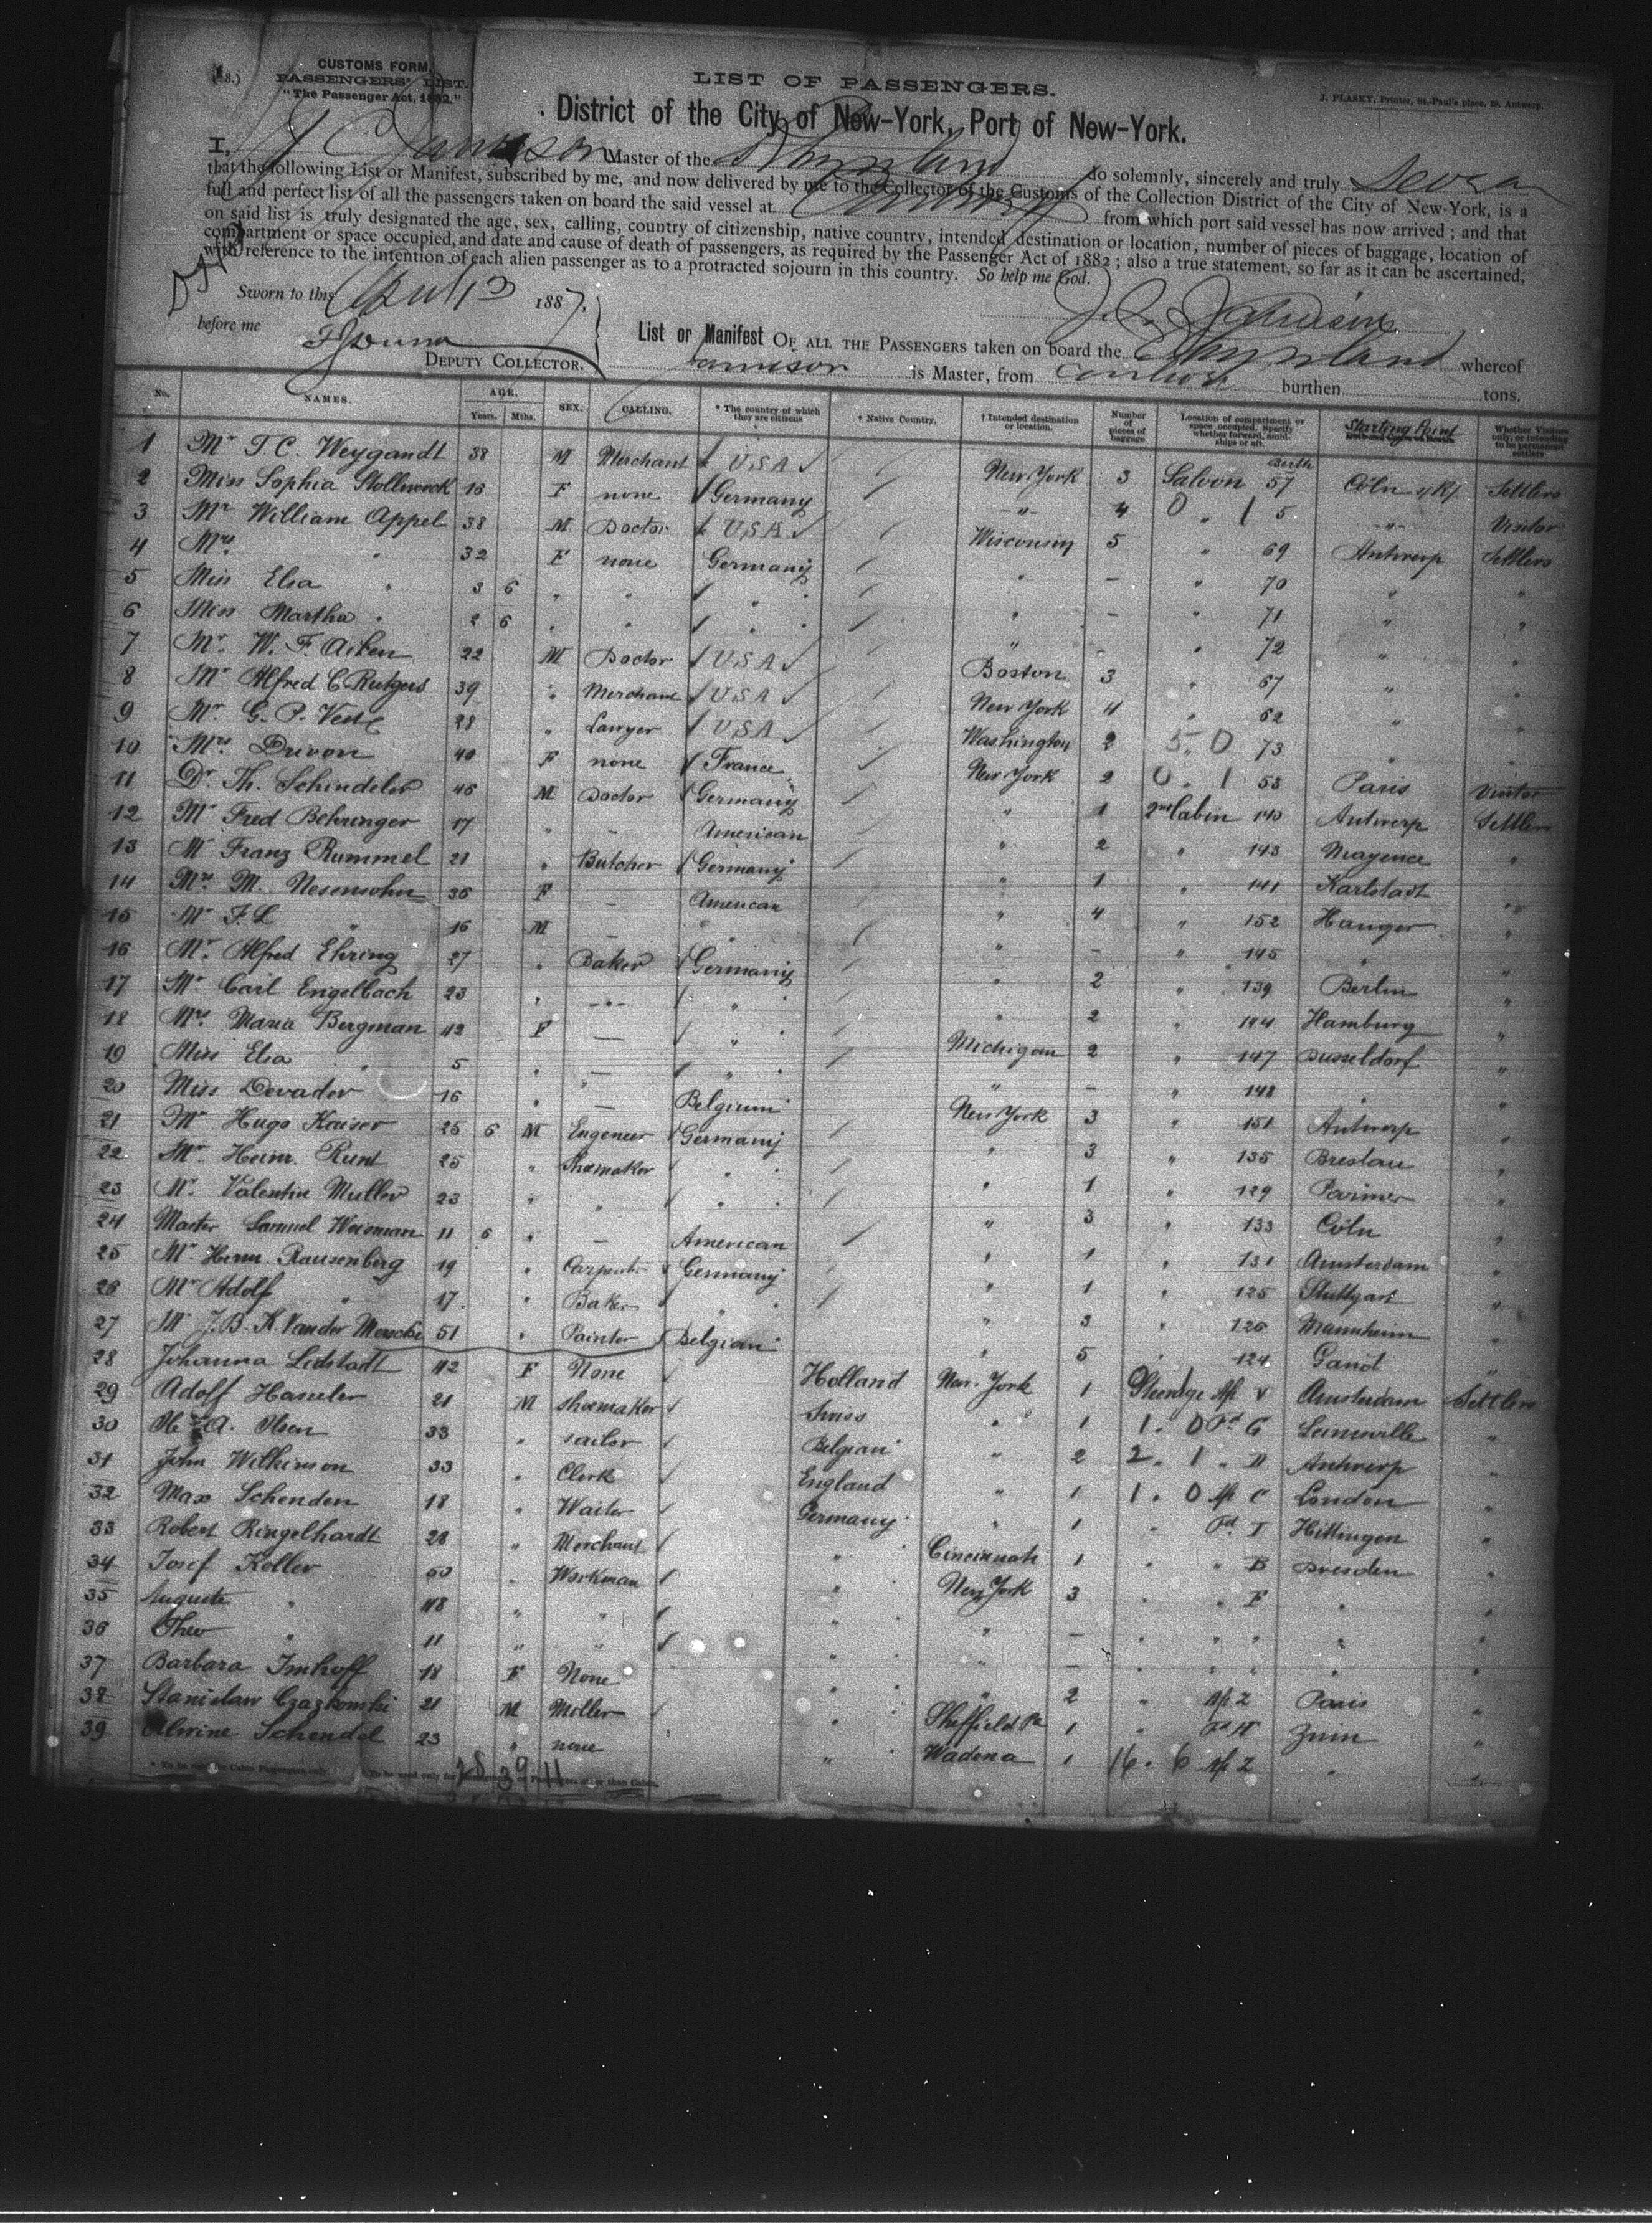 (48.)
CUSTOMS FORM,
PASSENGERS' LIST.
"The Passenger Act, 1882."
LIST OF PASSENGERS.
J. PLASKY, Printer, St.-Paul's place, Antwerp.
District of the City of New-York, Port of New-York.
I, J C Jamison Master of the Rhynland do solemnly, sincerely and truly Swear
that the following List or Manifest, subscribed by me, and now delivered by me to the Collector of the Customs of the Collection District of the City of New-York, is a
full and perfect list of all the passengers taken on board the said vessel at Antwerp from which port said vessel has now arrived; and that
on said list is truly designated the age, sex, calling, country of citizenship, native country, intended destination or location, number of pieces of baggage, location of
compartment or space occupied, and date and cause of death of passengers, as required by the Passenger Act of 1882; also a true statement, so far as it can be ascertained,
with reference to the intention of each alien passenger as to a protracted sojourn in this country. So help me God.
Sworn to this April 13 1887.
before me
DEPUTY COLLECTOR.
List or Manifest OF ALL THE PASSENGERS taken on board the Rhynland whereof
Jamison is Master, from Antwerp burthen tons.
No. NAMES. AGE. Years. Mths. SEX. CALLING. * The country of which they are citizens † Native Country, † Intended destination or location. Number of pieces of baggage Location of compartment or space occupied. Specify whether forward, amidships or aft. Starting Point Whether Visitors only, or intending to be permanent settlers
1 Mr T. C. Weygandt 38 M Merchant USA New York 3 Saloon Berth 57 Cöln Settlers
2 Miss Sophia Stollwerck 16 F none Germany -"- 4 0 " 1 5 -"- Visitor
3 Mr William Appel 38 M Doctor USA Wisconsin 5 " 69 Antwerp Settlers
4 Mrs " 32 F none Germany " - " 70 " "
5 Miss Elsa " 3 6 " " " " - " 71 " "
6 Miss Martha " 2 6 " " " " " 72 " "
7 Mr. W. F. Aiken 22 M Doctor USA Boston 3 " 67 " "
8 Mr Alfred C Rutgers 39 " Merchant USA New York 4 " 62 " "
9 Mr. G. P. 28 " Lawyer USA Washington 2 5 " 0 73 " "
10 Mrs Drivon 40 F none France New York 2 0 " 1 53 Paris Visitor
11 Dr Th. Schindeler 46 M Doctor Germany " 1 2nd Cabin 140 Antwerp Settlers
12 Mr Fred Behringer 17 " - American " 2 " 143 Mayence "
13 Mr Franz Rummel 21 " Butcher Germany " 1 " 141 Karlstadt "
14 Mrs M. Nesensohn 36 F - American " 4 " 152 Hanger "
15 Mr F. L " 16 M - " " - " 145 " "
16 Mr. Alfred Ehring 27 " Baker Germany " 2 " 139 Berlin "
17 Mr Carl Engelbach 23 " -"- " " 2 " 144 Hamburg "
18 Mrs. Maria Bergman 42 F - " Michigan 2 " 147 Dusseldorf "
19 Miss Elsa " 5 " - " " - " 148 " "
20 Miss Devader 16 " - Belgium New York 3 " 151 Antwerp "
21 Mr Hugo Kaiser 25 6 M Engeneer Germany " 3 " 135 Breslau "
22 Mr. Heinr. Runt 25 " Shoemaker " " 1 " 129 "
23 Mr. Valentin Muller 23 " " " " 3 " 133 Cöln "
24 Master Samuel Weisman 11 6 " - American " 1 " 131 Amsterdam "
25 Mr. Herm. Rausenberg 19 " Carpenter Germany " 1 " 125 Stuttgart "
26 Mr Adolf " 17 " Baker " " 3 " 126 Mannheim "
27 Mr J. B. K. Vander Mersche 51 " Painter Belgian " 5 " 124 Gand "
28 Johanna Ledstadt 42 F None Holland New-York 1 Steerage Amsterdam Settlers
29 Adolf Hanseler 21 M Shoemaker Swiss " 1 1. 0 G "
30 A. Olsen 33 " Tailor Belgian " 2 2. 1 " D Antwerp "
31 John Wilkinson 33 " Clerk England " 1 1. 0 C London "
32 Max Schenden 18 " Waiter Germany " 1 " I Hittingen "
33 Robert Ringelhardt 28 " Merchant " Cincinnati 1 " " B Dresden "
34 Josef Koller 50 " Workman " New York 3 " " F " "
35 Auguste " 48 " " " " - " " " " "
36 Theo " 11 " " " " - " " " " "
37 Barbara Imhoff 18 F None " " 2 " Z Paris "
38 Stanislaw Czazkowski 21 M Miller " Sheffield Pa 1 " H Znin "
39 Alwine Schendel 23 " none " Wadena 1 16. 6 Z " "
* To be used for Cabin Passengers only. † To be used only for Passengers other than Cabin.
28 39 11